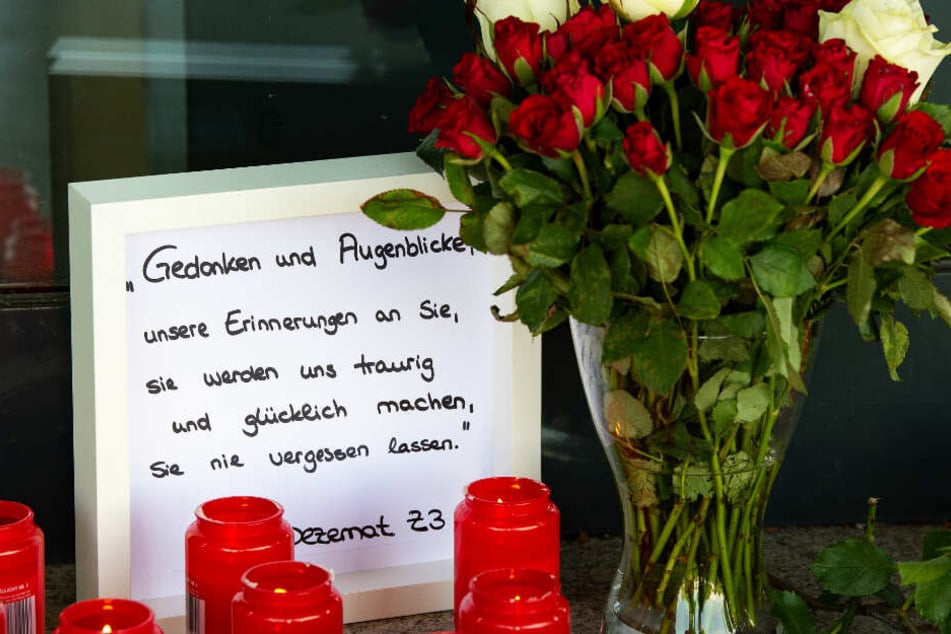 „Gedanken und Augenblicke,
unsere Erinnerungen an Sie,
sie werden uns traurig
und glücklich machen,
Sie nie vergessen lassen."
Dezernat Z3